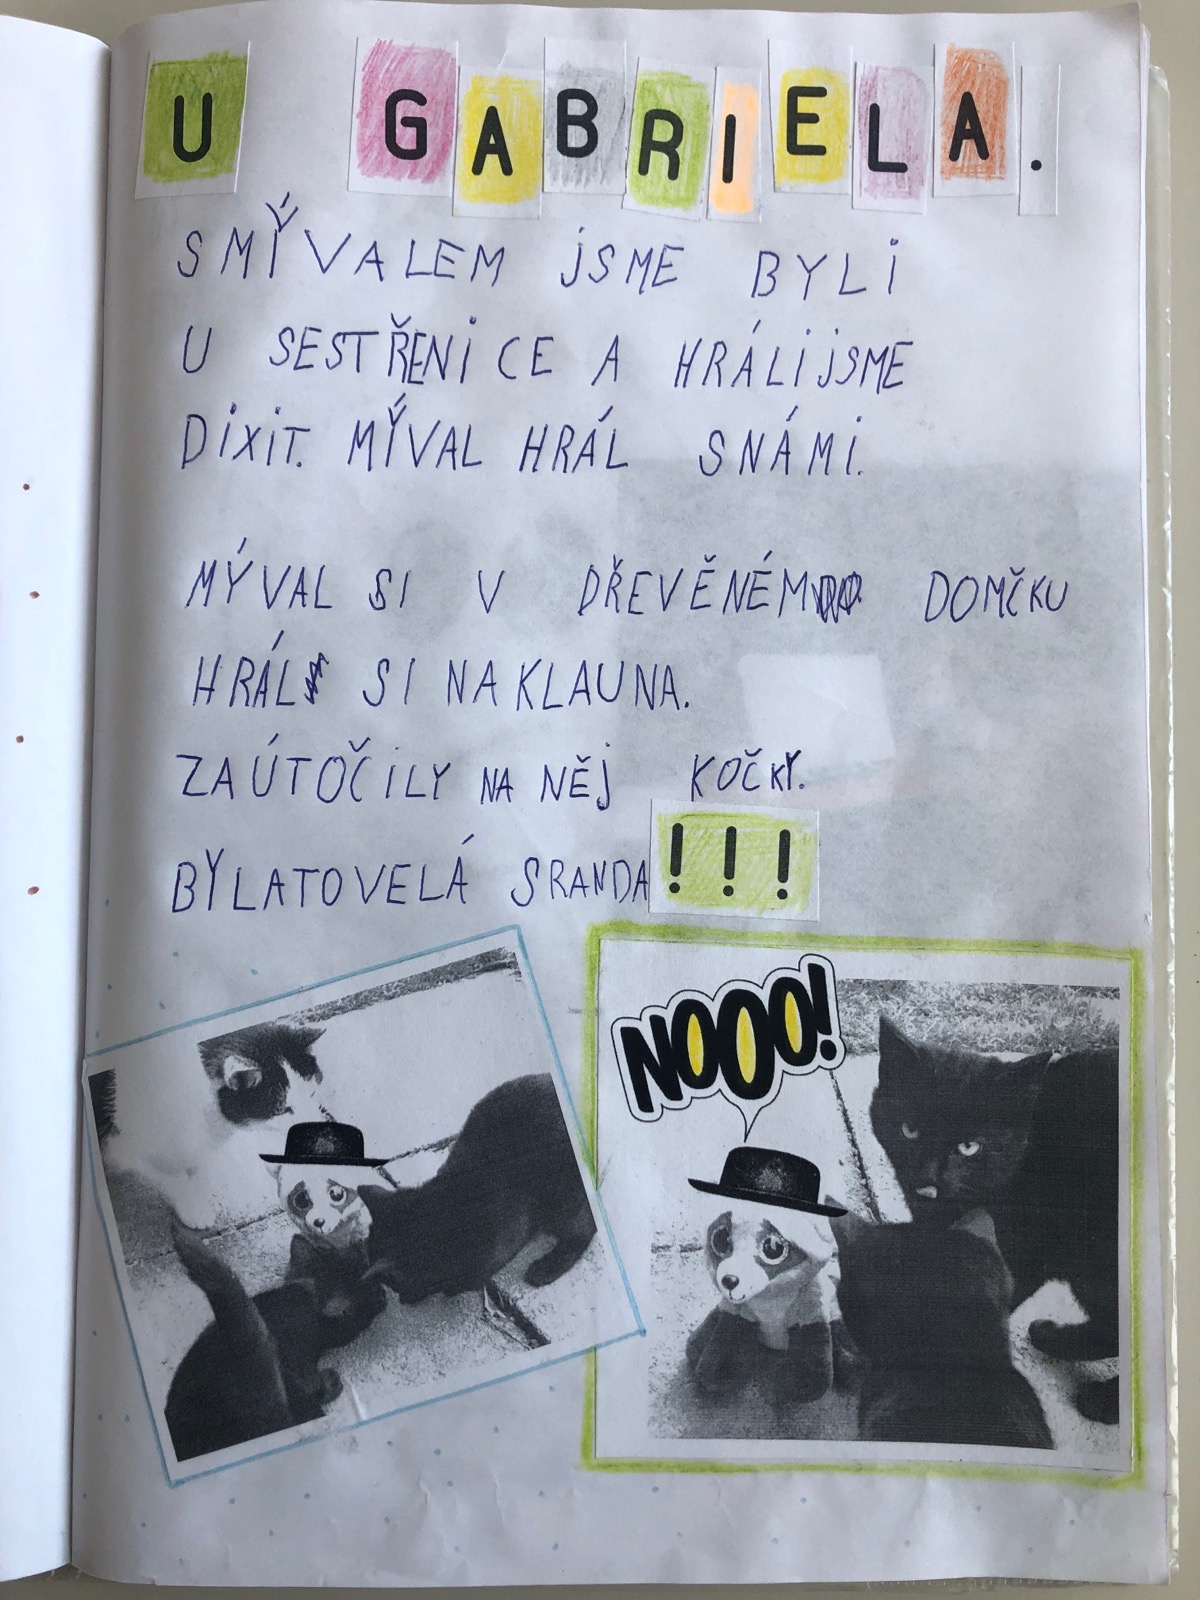 U GABRIELA.
SMÝVALEM JSME BYLI
U SESTŘENICE A HRÁLI JSME
DIXIT. MÝVAL HRÁL SNÁMI.
MÝVAL SI V DŘEVĚNÉM DOMČKU
HRÁL SI NA KLAUNA.
ZAÚTOČILY NA NĚJ KOČKY.
BYLATOVELÁ SRANDA!!!
NOOO!